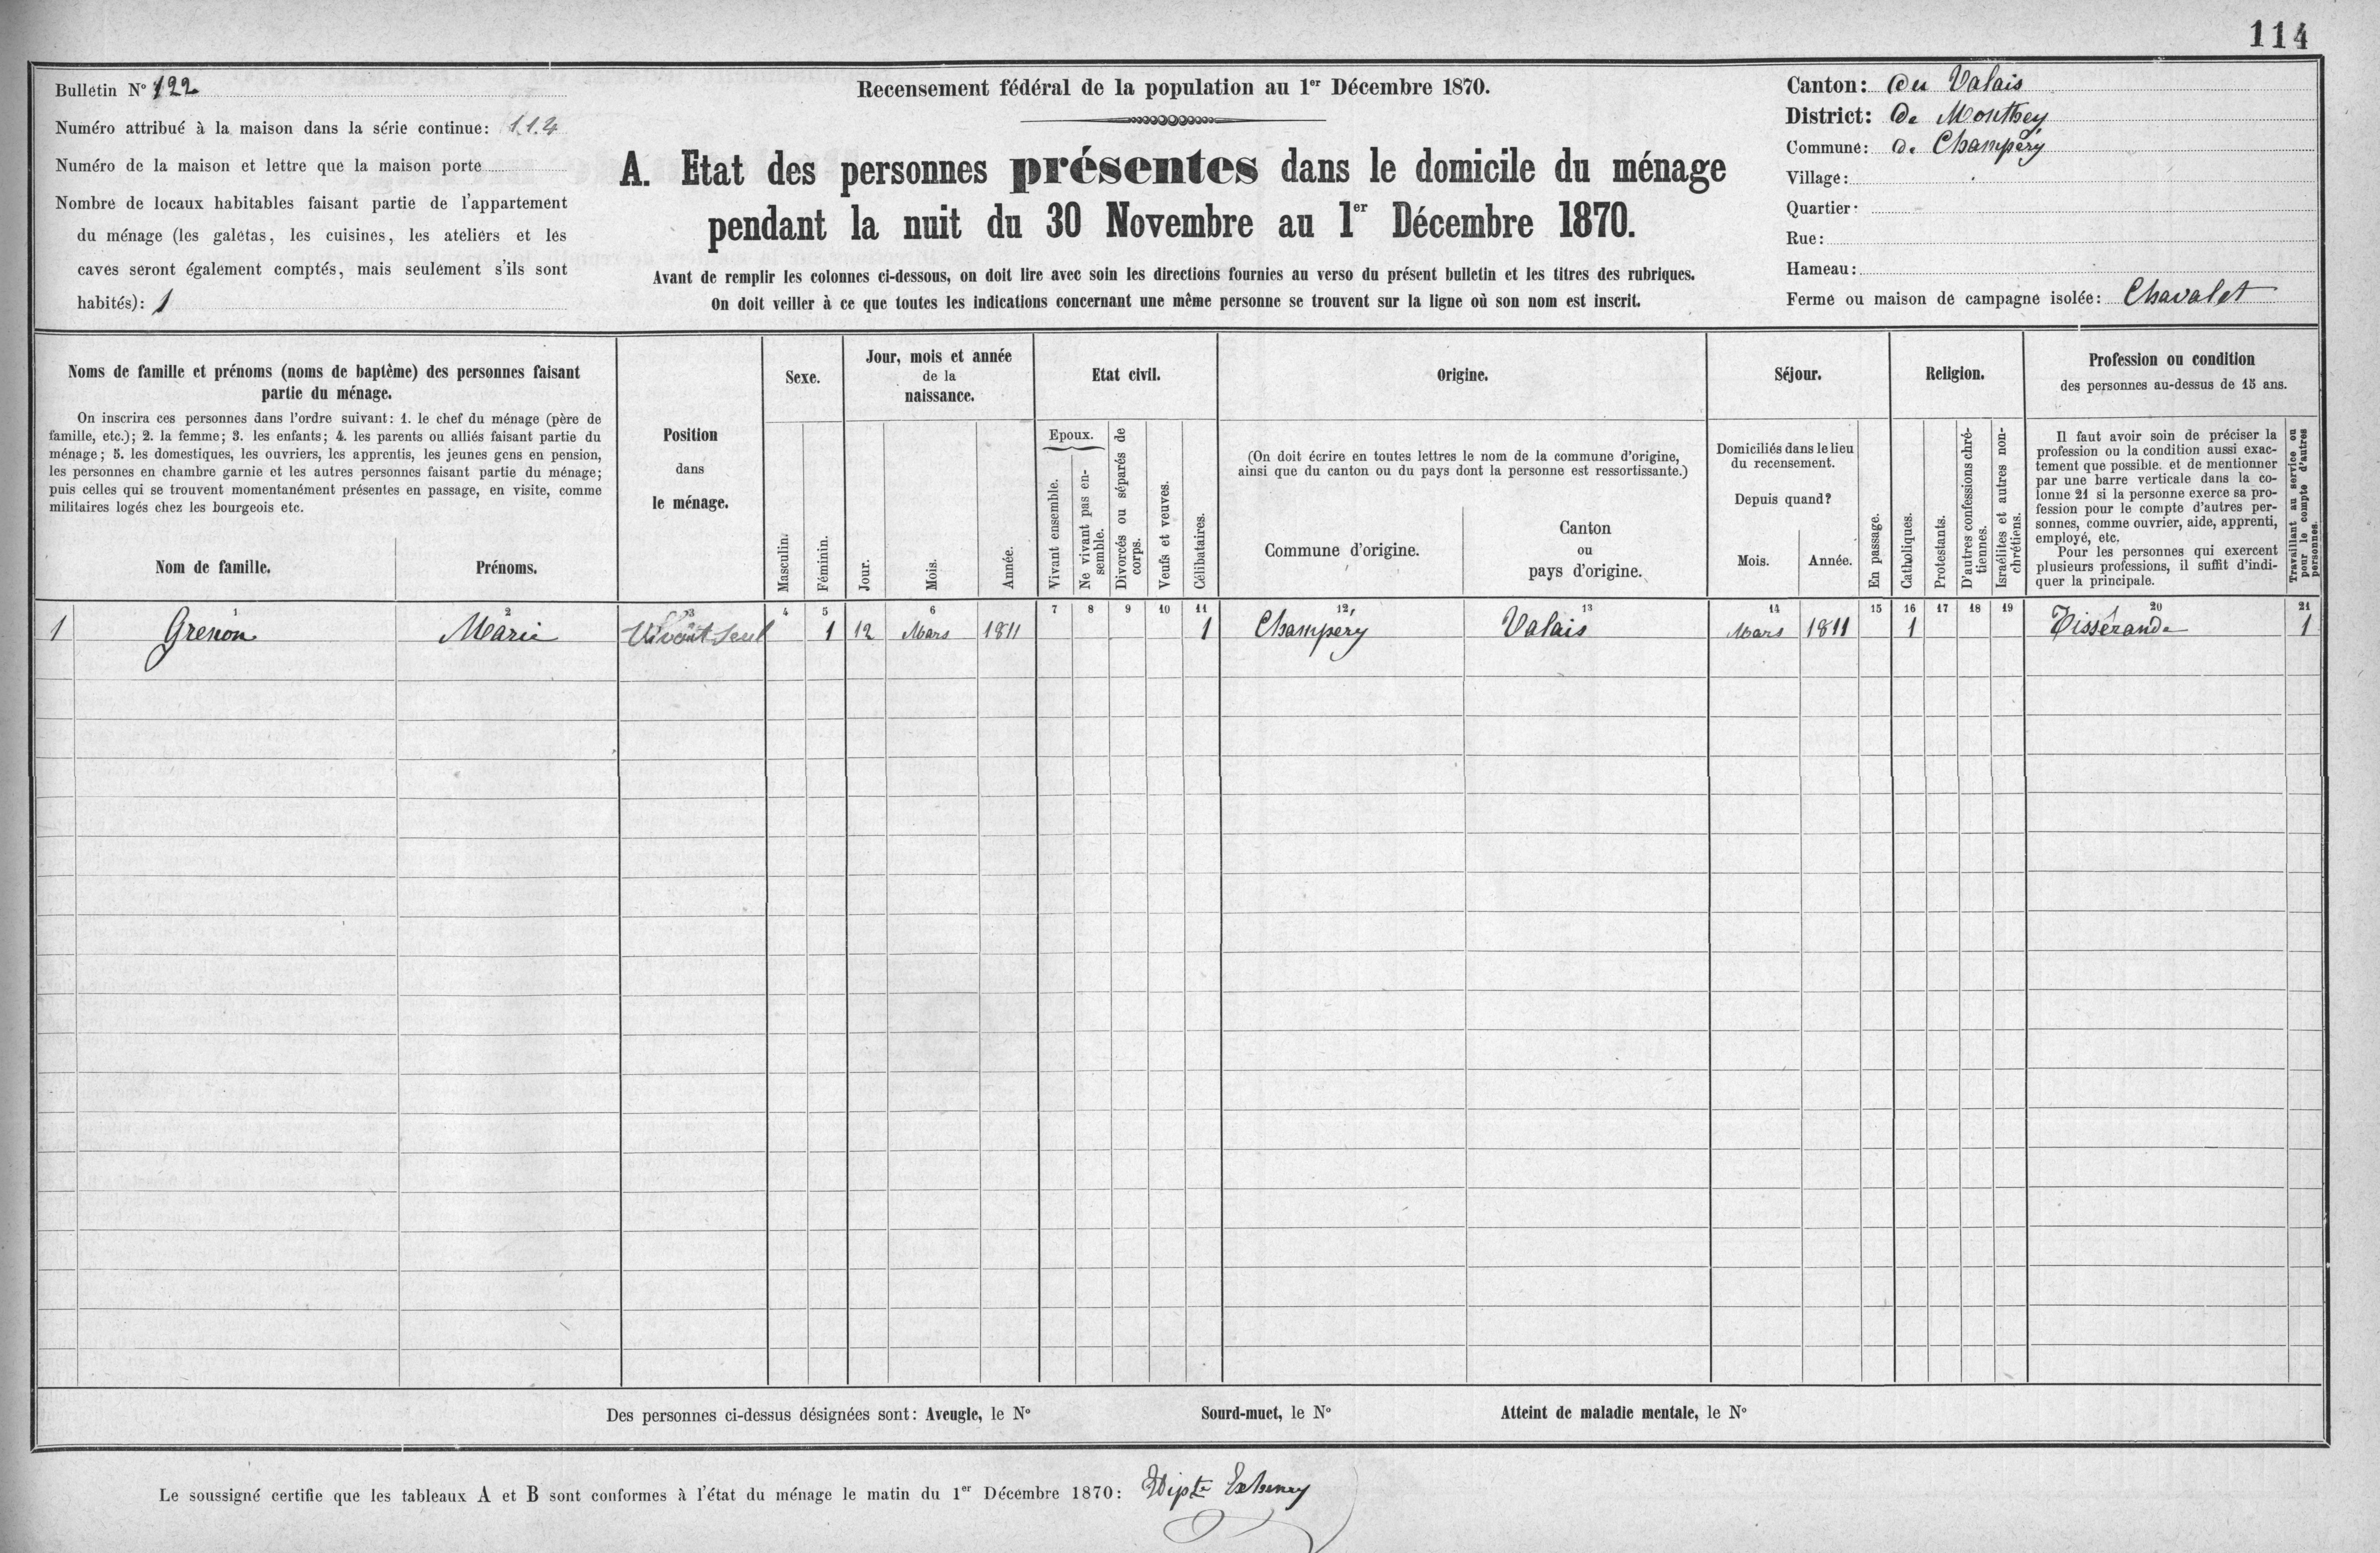 114
Bulletin N° 122
Numéro attribué à la maison dans la série continue: 114
Numéro de la maison et lettre que la maison porte
Nombre de locaux habitables faisant partie de l'appartement
du ménage (les galetas, les cuisines, les ateliers et les
caves seront également comptés, mais seulement s'ils sont
habités): 1
Recensement fédéral de la population au 1er Décembre 1870.
A. Etat des personnes présentes dans le domicile du ménage
pendant la nuit du 30 Novembre au 1er Décembre 1870.
Avant de remplir les colonnes ci-dessous, on doit lire avec soin les directions fournies au verso du présent bulletin et les titres des rubriques.
On doit veiller à ce que toutes les indications concernant une même personne se trouvent sur la ligne où son nom est inscrit.
Canton: du Valais
District: de Monthey
Commune: de Champéry
Village:
Quartier:
Rue:
Hameau:
Ferme ou maison de campagne isolée: Chavalet
Noms de famille et prénoms (noms de baptême) des personnes faisant
partie du ménage.
On inscrira ces personnes dans l'ordre suivant: 1. le chef du ménage (père de
famille, etc.); 2. la femme; 3. les enfants; 4. les parents ou alliés faisant partie du
ménage; 5. les domestiques, les ouvriers, les apprentis, les jeunes gens en pension,
les personnes en chambre garnie et les autres personnes faisant partie du ménage;
puis celles qui se trouvent momentanément présentes en passage, en visite, comme
militaires logés chez les bourgeois etc.
Nom de famille.
Prénoms.
Position
dans
le ménage.
Sexe.
Masculin.
Féminin.
Jour, mois et année
de la
naissance.
Jour.
Mois.
Année.
Etat civil.
Epoux.
Vivant ensemble.
Ne vivant pas en-
semble.
Divorcés ou séparés de
corps.
Veufs et veuves.
Célibataires.
Origine.
(On doit écrire en toutes lettres le nom de la commune d'origine,
ainsi que du canton ou du pays dont la personne est ressortissante.)
Commune d'origine.
Canton
ou
pays d'origine.
Séjour.
Domiciliés dans le lieu
du recensement.
Depuis quand?
Mois.
Année.
En passage.
Religion.
Catholiques.
Protestants.
D'autres confessions chré-
tiennes.
Israélites et autres non-
chrétiens.
Profession ou condition
des personnes au-dessus de 15 ans.
Il faut avoir soin de préciser la
profession ou la condition aussi exac-
tement que possible. et de mentionner
par une barre verticale dans la co-
lonne 21 si la personne exerce sa pro-
fession pour le compte d'autres per-
sonnes, comme ouvrier, aide, apprenti,
employé, etc.
Pour les personnes qui exercent
plusieurs professions, il suffit d'indi-
quer la principale.
Travaillant au service ou
pour le compte d'autres
personnes.
1 2 3 4 5 6 7 8 9 10 11 12 13 14 15 16 17 18 19 20 21
1 Grenon Marie Vivant seul 1 12 Mars 1811 1 Champery Valais Mars 1811 1 Tisserande 1
Des personnes ci-dessus désignées sont: Aveugle, le N° Sourd-muet, le N° Atteint de maladie mentale, le N°
Le soussigné certifie que les tableaux A et B sont conformes à l'état du ménage le matin du 1er Décembre 1870: